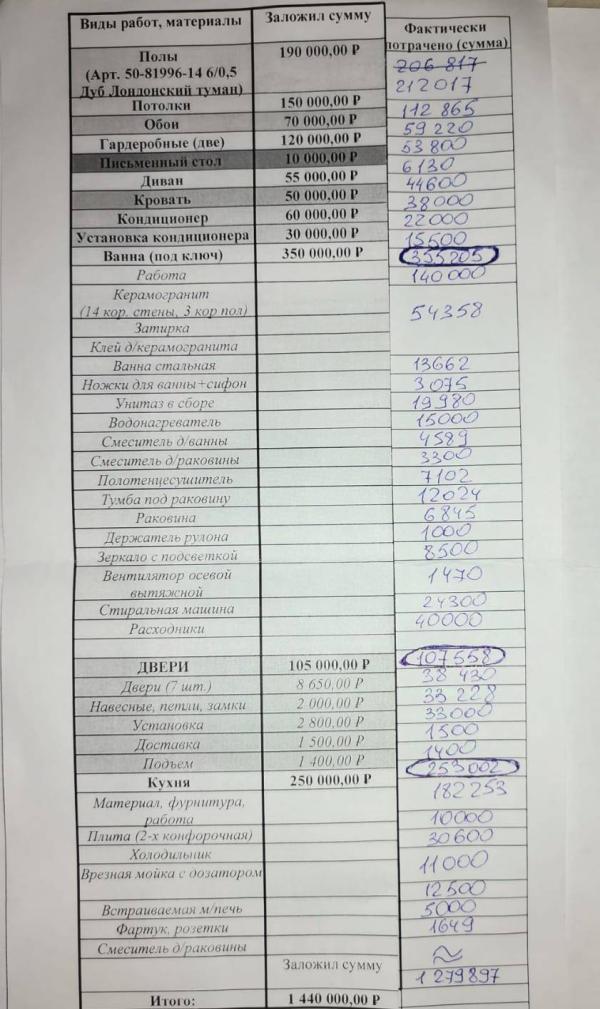 Виды работ, материалы Заложил сумму Фактически
потрачено (сумма)
Полы 190 000,00 Р 206 817
(Арт. 50-81996-14 6/0,5 212017
Дуб Лондонский туман)
Потолки 150 000,00 Р 112 865
Обои 70 000,00 Р 59 220
Гардеробные (две) 120 000,00 Р 53 800
Письменный стол 10 000,00 Р 6130
Диван 55 000,00 Р 44600
Кровать 50 000,00 Р 38000
Кондиционер 60 000,00 Р 22000
Установка кондиционера 30 000,00 Р 15500
Ванна (под ключ) 350 000,00 Р 355205
Работа 140000
Керамогранит
(14 кор. стены, 3 кор пол) 54358
Затирка
Клей д/керамогранита
Ванна стальная 13662
Ножки для ванны+сифон 3075
Унитаз в сборе 19980
Водонагреватель 15000
Смеситель д/ванны 4589
Смеситель д/раковины 3300
Полотенцесушитель 7102
Тумба под раковину 12024
Раковина 6845
Держатель рулона 1000
Зеркало с подсветкой 8500
Вентилятор осевой 1470
вытяжной
Стиральная машина 24300
Расходники 40000
ДВЕРИ 105 000,00 Р 107558
Двери (7 шт.) 8 650,00 Р 38 430
Навесные, петли, замки 2 000,00 Р 33 228
Установка 2 800,00 Р 33000
Доставка 1 500,00 Р 1500
Подъем 1 400,00 Р 1400
Кухня 250 000,00 Р 253002
Материал, фурнитура, 182253
работа
Плита (2-х конфорочная) 10000
Холодильник 30600
Врезная мойка с дозатором 11000
Встраиваемая м/печь 12500
Фартук, розетки 5000
Смеситель д/раковины 1649
Заложил сумму ≈
1 279897
Итого: 1 440 000,00 Р